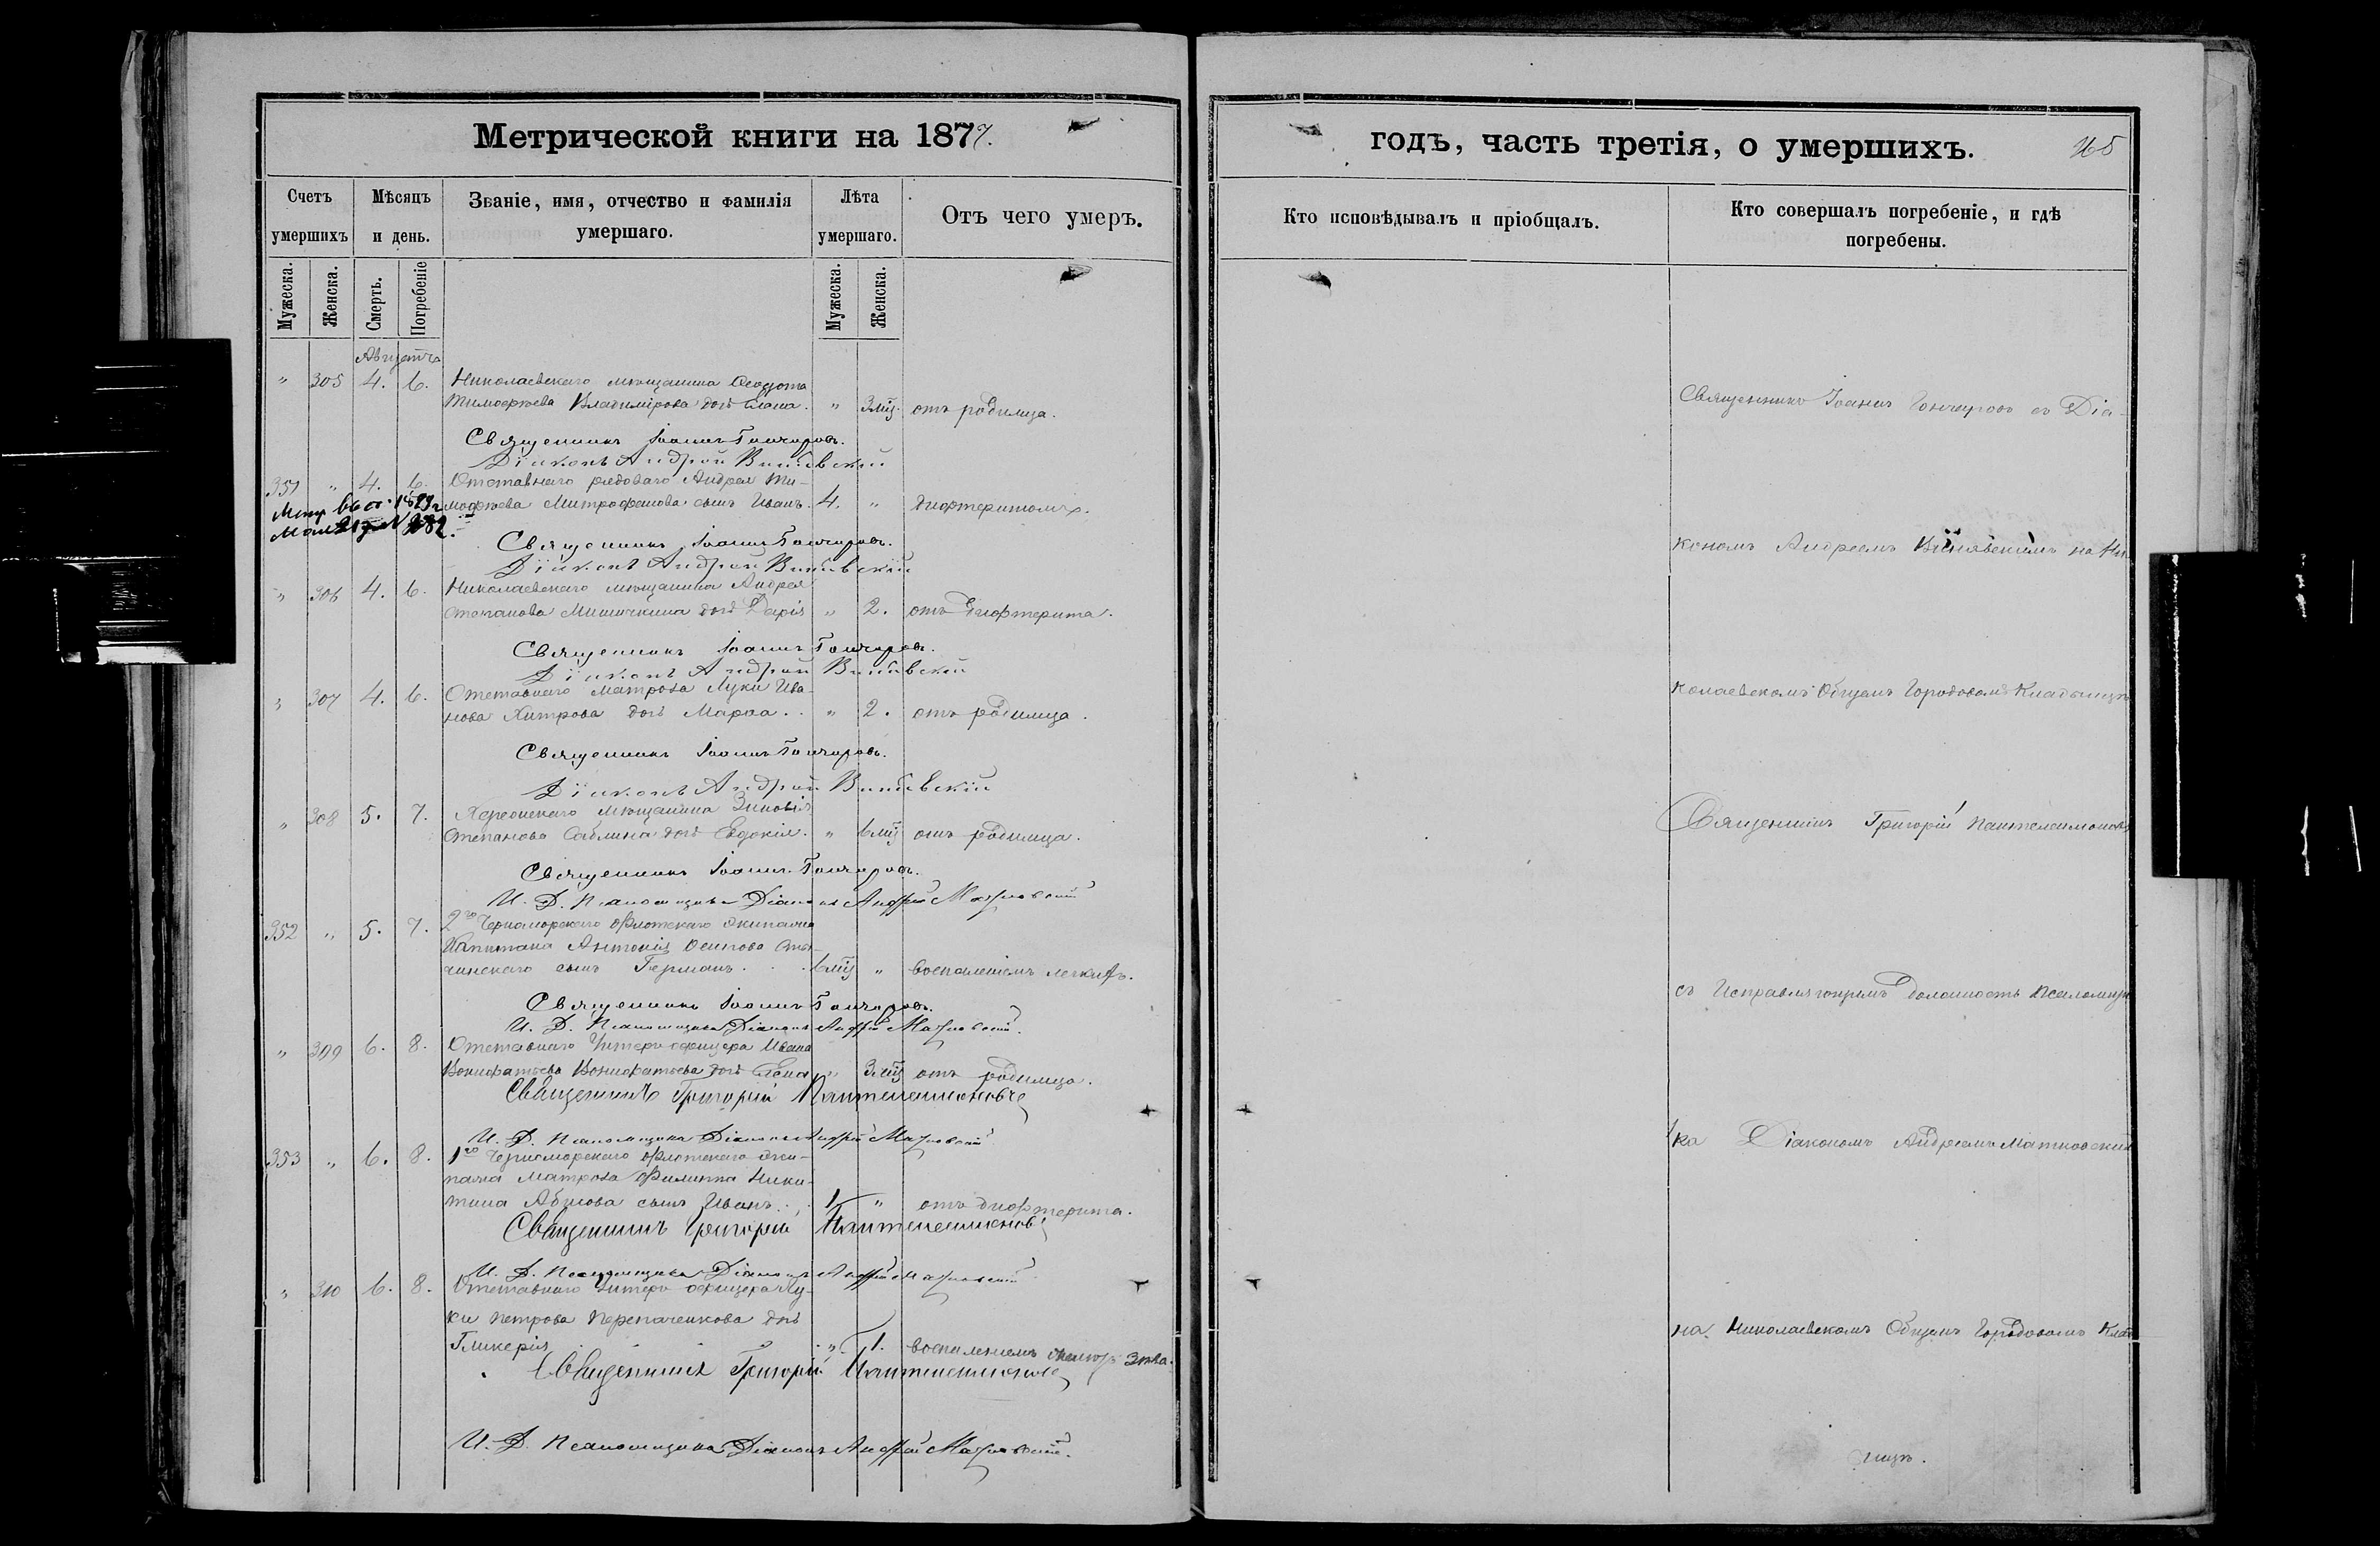 Метрической книги на 1877.
Счетъ умершихъ
Мѣсяцъ и день.
Званіе, имя, отчество и фамилія умершаго.
Лѣта умершаго.
Отъ чего умеръ.
Мужеска.
Женска.
Смерть.
Погребеніе
Мужеска.
Женска.
Августа
" 305 4. 6. Николаевскаго мѣщанина Ѳеодота
Тимофѣева Владимірова дочь Елена. " 3 мѣс. отъ родимца.
Священникъ Іоаннъ Гончаровъ.
Діаконъ Андрей
351 " 4. 6. Отставнаго рядоваго Андрея Ти-
мофѣева Митрофанова сынъ Иванъ. 4. " дифтеритомъ.
Священникъ Іоаннъ Гончаровъ.
Діаконъ Андрей
" 306 4. 6. Николаевскаго мѣщанина Андрея
Степанова Мишечкина дочь Дарія " 2. отъ дифтерита.
Священникъ Іоаннъ Гончаровъ.
Діаконъ Андрей
" 307 4. 6. Отставнаго матроса Луки Ива-
нова Хитрова дочь Марѳа.. " 2. отъ родимца.
Священникъ Іоаннъ Гончаровъ.
Діаконъ Андрей
" 308 5. 7. Херсонскаго мѣщанина Зиновія
Степанова Саблина дочь Евдокія. " 6 мѣс отъ родимца.
Священникъ Іоаннъ Гончаровъ.
И. Д. Псаломщика Діаконъ Андрей Матковскій
352 " 5. 7. 2го Черноморскаго флотскаго экипажа
Капитана Антонія Осипова
сынъ Германъ. . . 6 мѣс " воспаленіемъ легкихъ.
Священникъ Іоаннъ Гончаровъ.
И. Д. Псаломщика Діаконъ Андрей Матковскій.
" 309 6. 8. Отставнаго Унтеръ офицера Ивана
Вонифатьева Вонифатьева дочь Елена " 3 мѣс отъ родимца.
Священникъ Григорій Пантелеимоновъ
И. Д. Псаломщика Діаконъ Андрей Матковскій
353 " 6. 8. 1го Черноморскаго флотскаго эки-
пажа матроса Филиппа Ники-
тина сынъ Иванъ. . . 1 " отъ дифтерита.
Священникъ Григорій Пантелеимоновъ
И. Д. Псаломщика Діаконъ Андрей Матковскій
" 310 6. 8. Отставнаго Унтеръ офицера Лу-
ки Петрова Перепаченкова дочь
Гликерія " 1. воспаленіемъ зѣва.
Священникъ Григорій Пантелеимоновъ
И. Д. Псаломщика Діаконъ Андрей Матковскій.
годъ, часть третія, о умершихъ.
Кто исповѣдывалъ и пріобщалъ.
Кто совершалъ погребеніе, и гдѣ погребены.
Священникъ Іоаннъ Гончаровъ съ Діа-
кономъ Андреемъ на Ни-
колаевскомъ Общемъ Городовомъ Кладбищѣ
Священникъ Григорій Пантелеимоновъ
съ Исправляющимъ должность Псаломщи
ка Діакономъ Андреемъ Матковскимъ
на Николаевскомъ Общемъ Городовомъ Клад
бищѣ.